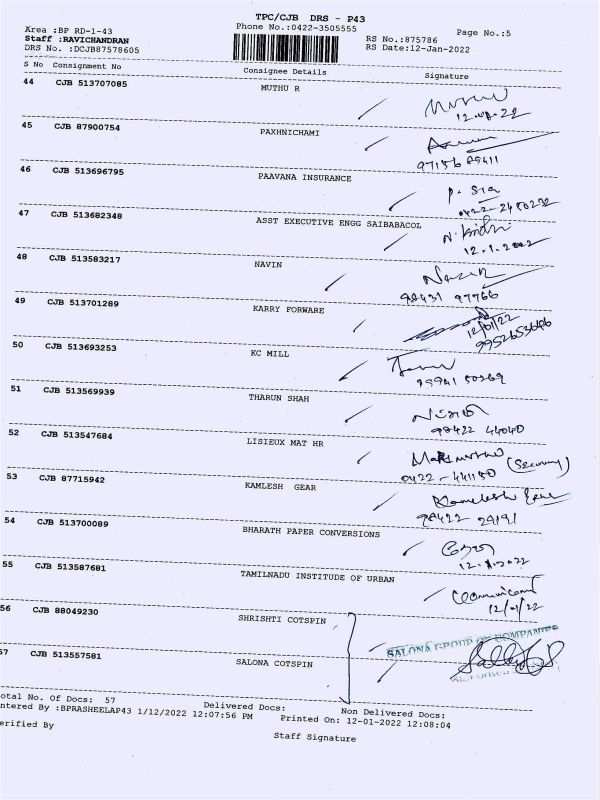 TPC/CJB DRS - P43
Area :BP RD-1-43
Phone No.:0422-3505555
Page No.:5
Staff :RAVICHANDRAN
RS No.:875786
DRS No. :DCJB87578605
RS Date:12-Jan-2022
S No Consignment No Consignee Details Signature
44 CJB 513707085 MUTHU R
45 CJB 87900754 PAXHNICHAMI
46 CJB 513696795 PAAVANA INSURANCE
47 CJB 513682348 ASST EXECUTIVE ENGG SAIBABACOL
12.1.2022
48 CJB 513583217 NAVIN
98431 97766
49 CJB 513701289 KARRY FORWARE
12/01/22
9952653646
50 CJB 513693253 KC MILL
51 CJB 513569939 THARUN SHAH
98422 44040
52 CJB 513547684 LISIEUX MAT HR
0422-441150 (Security)
53 CJB 87715942 KAMLESH GEAR
Kamlesh Gear
98422 29191
54 CJB 513700089 BHARATH PAPER CONVERSIONS
12.1.2022
55 CJB 513587681 TAMILNADU INSTITUDE OF URBAN
12/01/22
56 CJB 88049230 SHRISHTI COTSPIN
SALONA GROUP OF COMPANIES
57 CJB 513557581 SALONA COTSPIN
otal No. Of Docs: 57 Delivered Docs: Non Delivered Docs:
ntered By :BPRASHEELAP43 1/12/2022 12:07:56 PM Printed On: 12-01-2022 12:08:04
erified By
Staff Signature